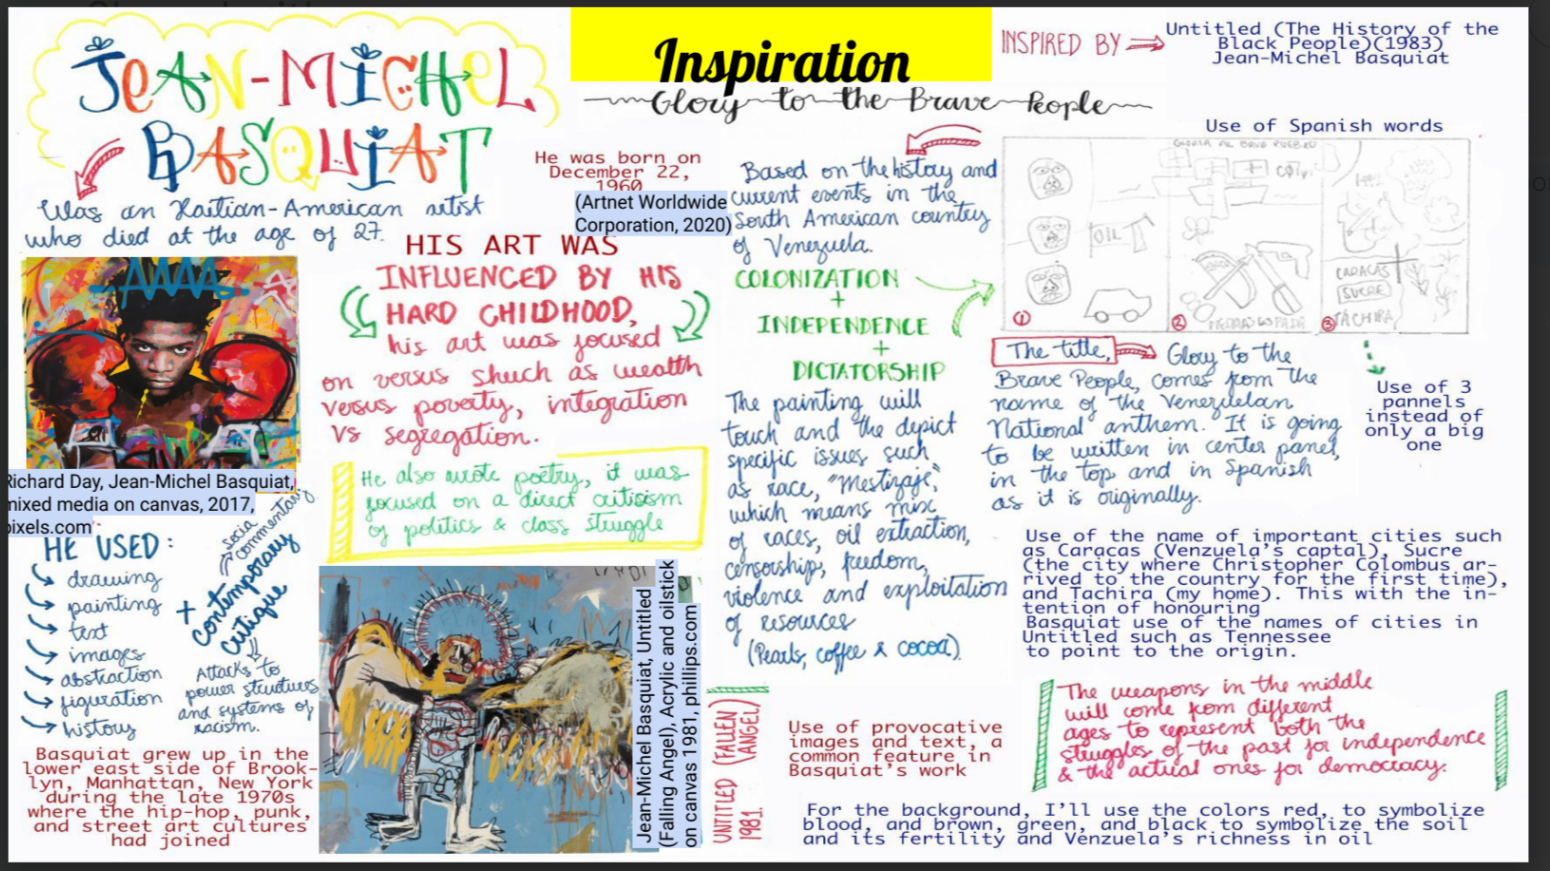 Inspiration
JEAN-MICHEL
BASQUIAT
Was an Haitian-American artist
who died at the age of 27.
He was born on
December 22,
1960
(Artnet Worldwide
Corporation, 2020)
HIS ART WAS
INFLUENCED BY HIS
HARD CHILDHOOD,
his art was focused
on versus shuch as wealth
versus poverty, integration
vs segregation.
He also wrote poetry, it was
focused on a direct criticism
of politics & class struggle
Richard Day, Jean-Michel Basquiat,
mixed media on canvas, 2017,
pixels.com
HE USED:
drawing
painting
text
images
abstraction
figuration
history
+
Social
commentary
contemporary
critique
Attacks to
power structures
and systems of
racism.
Basquiat grew up in the
lower east side of Brook-
lyn, Manhattan, New York
during the late 1970s
where the hip-hop, punk,
and street art cultures
had joined
Jean-Michel Basquiat, Untitled
(Falling Angel), Acrylic and oilstick
on canvas 1981, phillips.com
UNTITLED (FALLEN
ANGEL)
1981.
Glory to the Brave People
Based on the history and
current events in the
South American country
of Venezuela.
COLONIZATION
+
INDEPENDENCE
+
DICTATORSHIP
The painting will
touch and the depict
specific issues such
as race, "Mestizaje,"
which means mix
of races, oil extraction,
censorship, freedom,
violence and exploitation
of resources
(Pearls, coffee & cocoa).
Use of provocative
images and text, a
common feature in
Basquiat's work
INSPIRED BY
Untitled (The History of the
Black People)(1983)
Jean-Michel Basquiat
Use of Spanish words
GLORIA AL BRAVO PUEBLO
OIL
CARACAS
SUCRE
TÁCHIRA
1
2
3
The title,
Glory to the
Brave People, comes from the
name of the Venezuelan
National anthem. It is going
to be written in center panel,
in the top and in Spanish
as it is originally.
Use of 3
pannels
instead of
only a big
one
Use of the name of important cities such
as Caracas (Venzuela's captal), Sucre
(the city where Christopher Colombus ar-
rived to the country for the first time),
and Tachira (my home). This with the in-
tention of honouring
Basquiat use of the names of cities in
Untitled such as Tennessee
to point to the origin.
The weapons in the middle
will come from different
ages to represent both the
struggles of the past for independence
& the actual ones for democracy.
For the background, I'll use the colors red, to symbolize
blood, and brown, green, and black to symbolize the soil
and its fertility and Venzuela's richness in oil